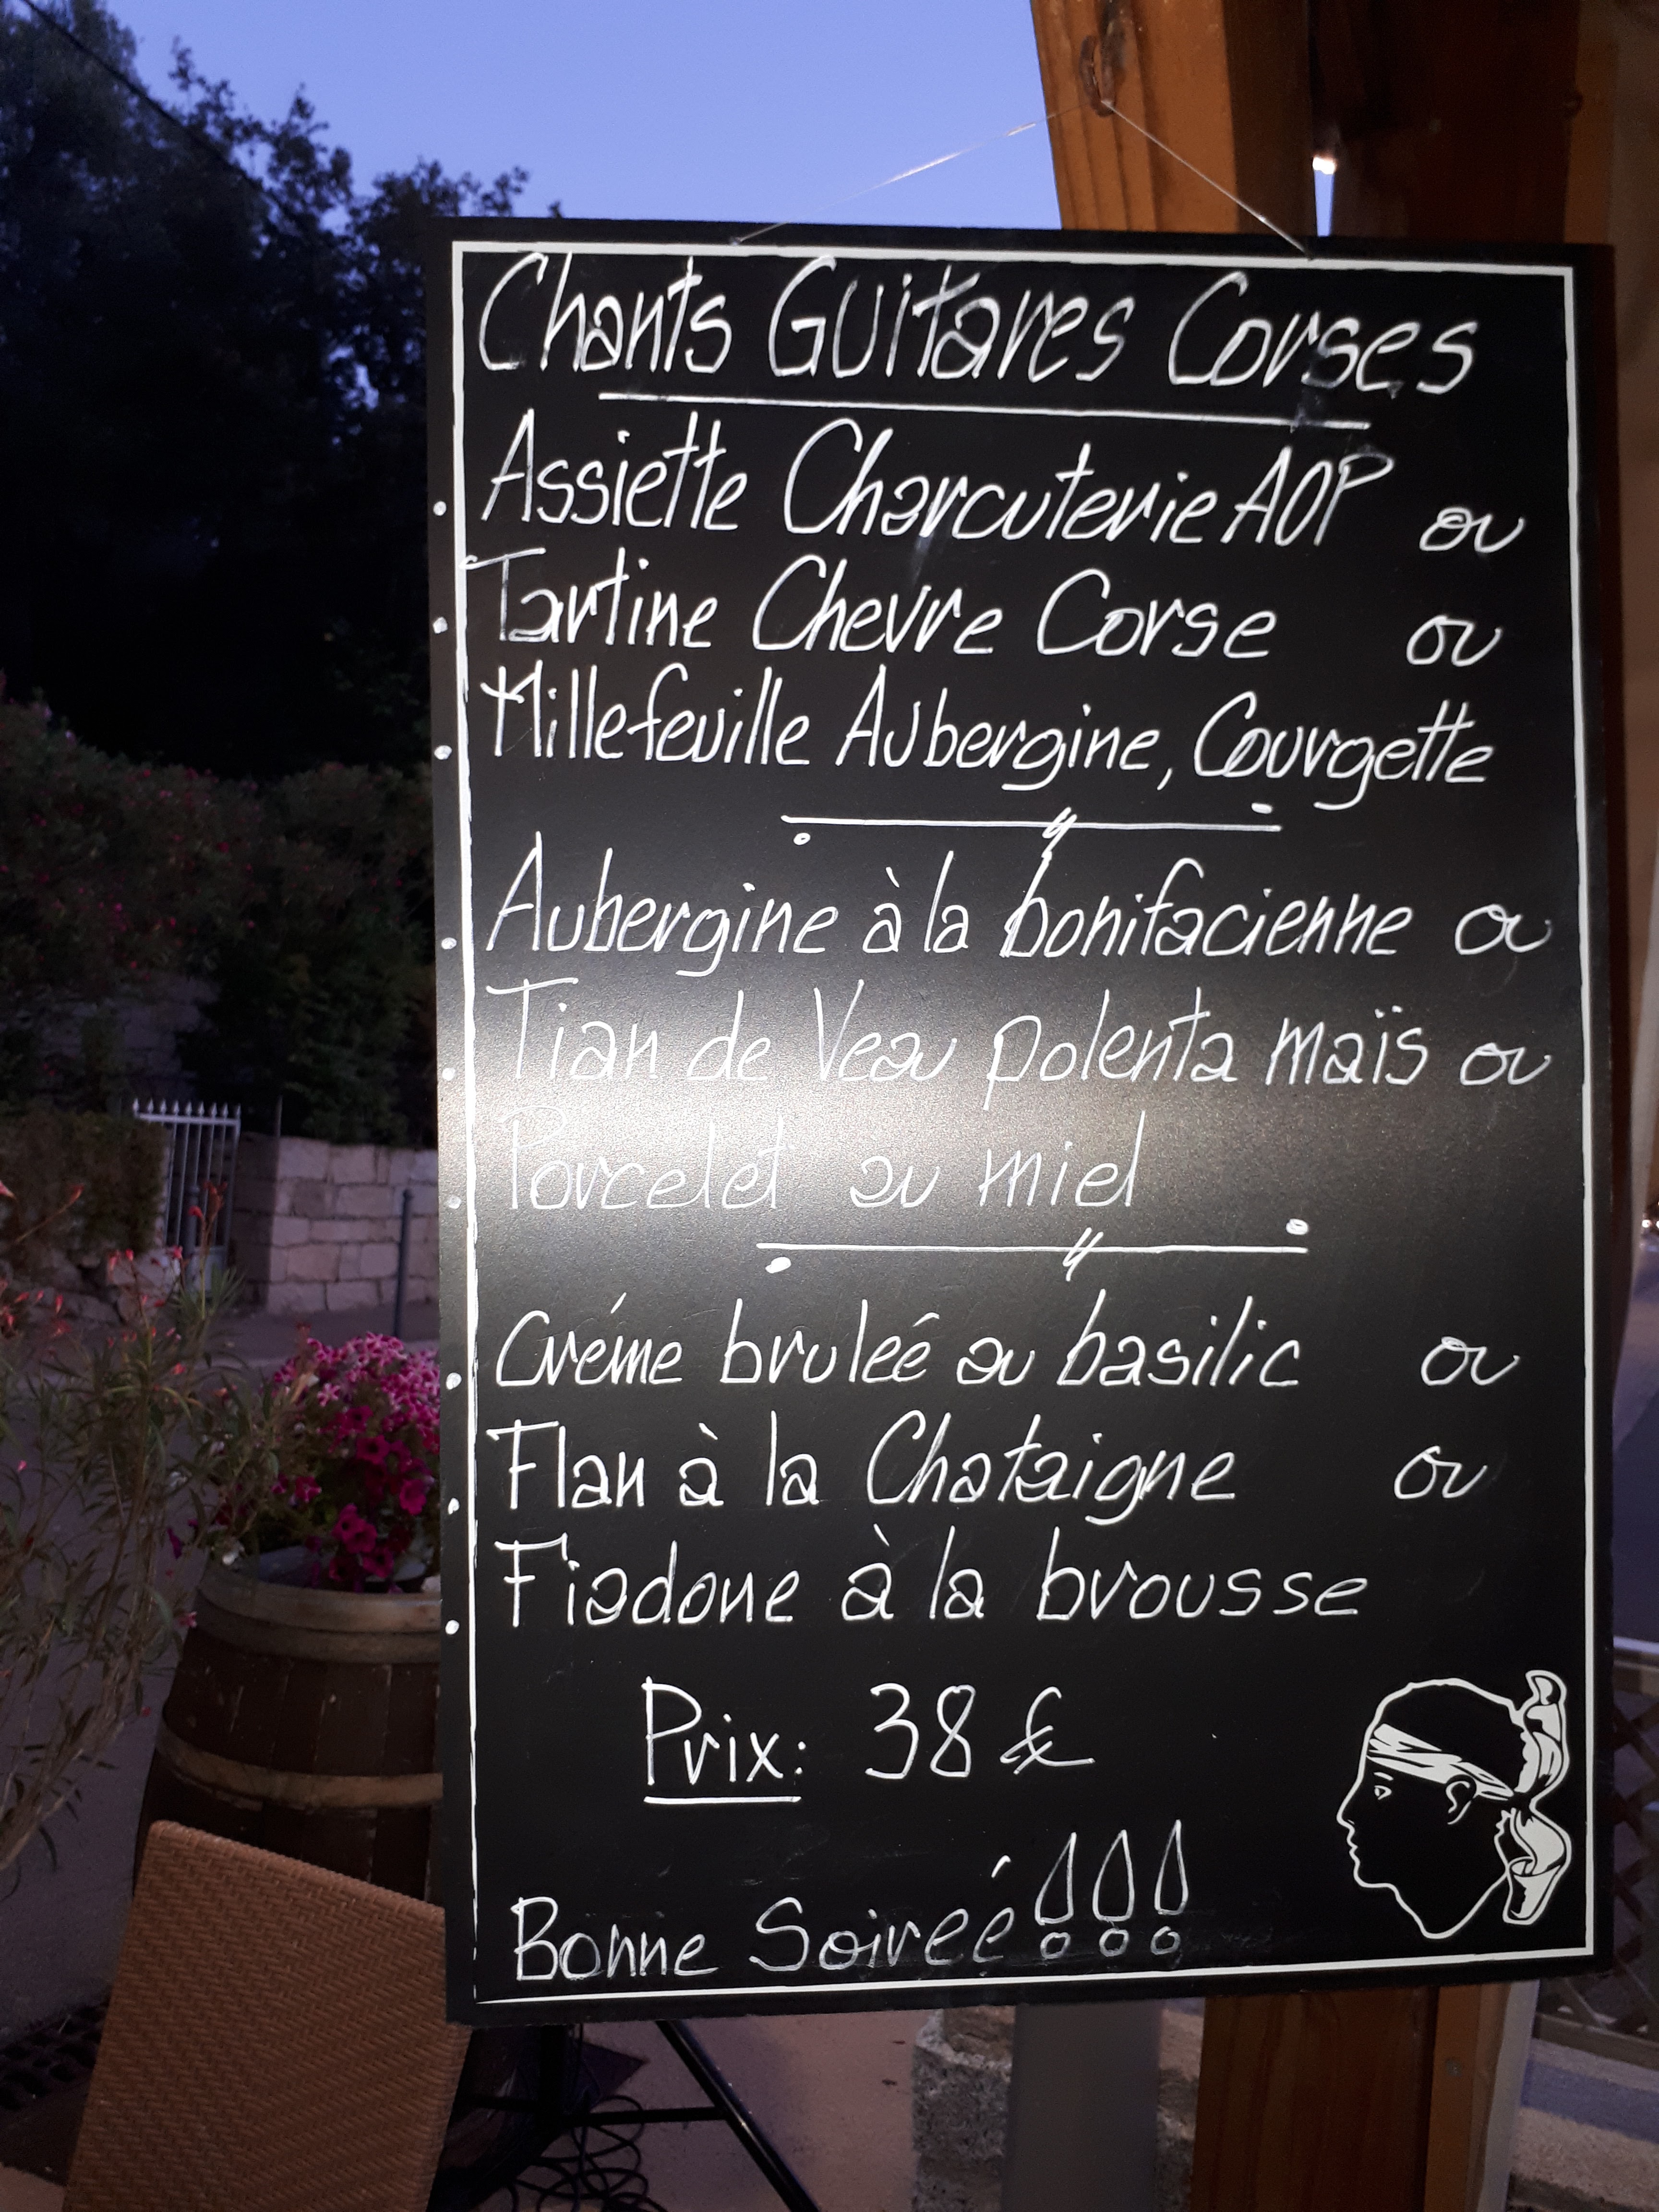 Chants Guitares Corses
. Assiette Charcuterie AOP ou
. Tartine Chevre Corse ou
. Millefeuille Aubergine, Courgette
. Aubergine à la bonifacienne ou
. Tian de Veau polenta maïs ou
. Porcelet au miel
. Créme bruleé au basilic ou
. Flan à la Chataigne ou
. Fiadone à la brousse
Prix: 38 €
Bonne Soireé !!!